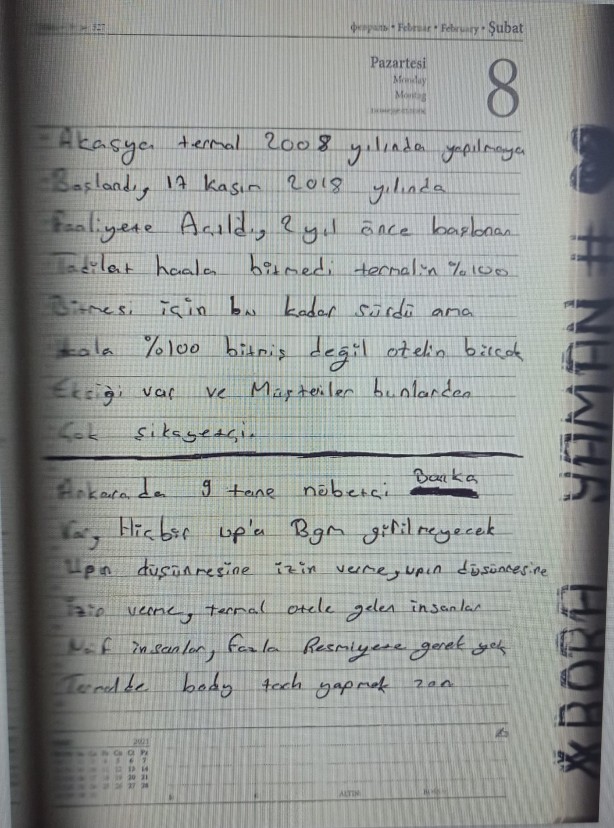 февраль • Februar • February • Şubat
Pazartesi
Monday
Montag
8
- Akasya termal 2008 yılında yapılmaya
Başlandı, 17 Kasın 2018 yılında
Faaliyete Açıldı, 2 yıl önce başlanan
Tadilat haala bitmedi termalin %100
Bitmesi için bu kadar sürdü ama
Hala %100 bitmiş değil otelin birçok
Eksiği var ve Müşteriler bunlardan
Çok şikayetçi.
Ankara da 9 tane nöbetçi Banka
Var, Hiçbir up'a Bgm girilmeyecek
Upın düşünmesine izin verme, upın düşüncesine
İzin verme, termal otele gelen insanlar
Naif insanlar, fazla Resmiyete gerek yok
Termalde body tech yapmak zor
2021
* BORA YAMAN #